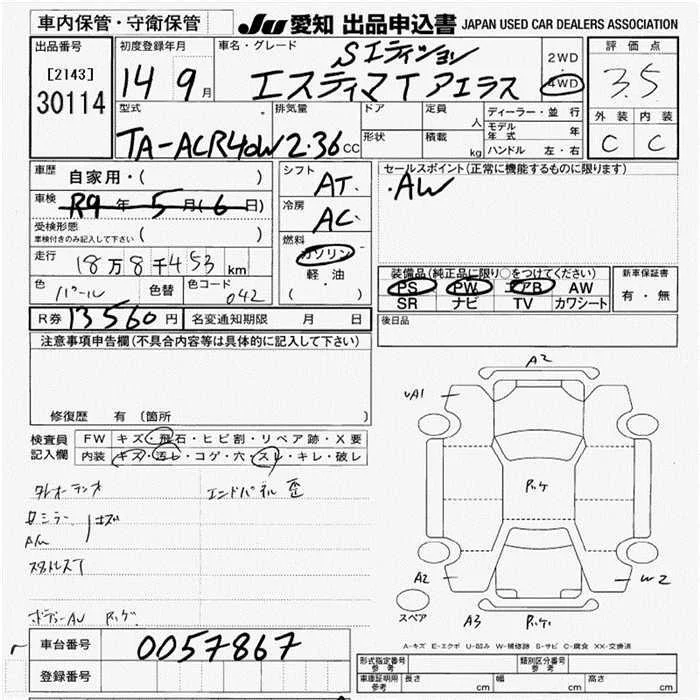 車内保管・守衛保管
JU 愛知 出品申込書 JAPAN USED CAR DEALERS ASSOCIATION
出品番号
[2143]
30114
初度登録年月
14 9月
車名・グレード
Sエディション
エスティマT アエラス
2WD
4WD
評価点
3.5
外装 内装
C C
型式
TA-ACR40W
排気量
2.36cc
ドア
形状
定員 人
積載 kg
ディーラー・並行
モデル年式 年
ハンドル 左・右
車歴 自家用・( )
車検 R9年5月(6日)
受検形態
車検付きのみ記入して下さい ( )
走行 18万8千453km
色 パール 色替 色コード 042
シフト AT
冷房 AC
燃料 ガソリン
軽・油
( )
セールスポイント(正常に機能するものに限ります)
・AW
装備品(純正品に限り○をつけてください)
PS PW エアB AW
SR ナビ TV カワシート
新車保証書
有・無
R券 13560円 名変通知期限 月 日
後日品
注意事項申告欄(不具合内容等は具体的に記入して下さい)
修復歴 有 〔箇所 〕
検査員記入欄
FW キズ・飛石・ヒビ割・リペア跡・X要
内装 キズ・汚レ・コゲ・穴・スレ・キレ・破レ
エンドパネル 歪
ミラー キズ
A/W
A2
A1
A2
W2
A3
スペア
A-キズ E-エクボ U-凹み W-補修跡 S-サビ C-腐食 XX-交換済
車台番号 0057867
登録番号
形式指定番号 参考
類別区分番号 参考
車庫証明用 参考
長さ cm 幅 cm 高さ cm